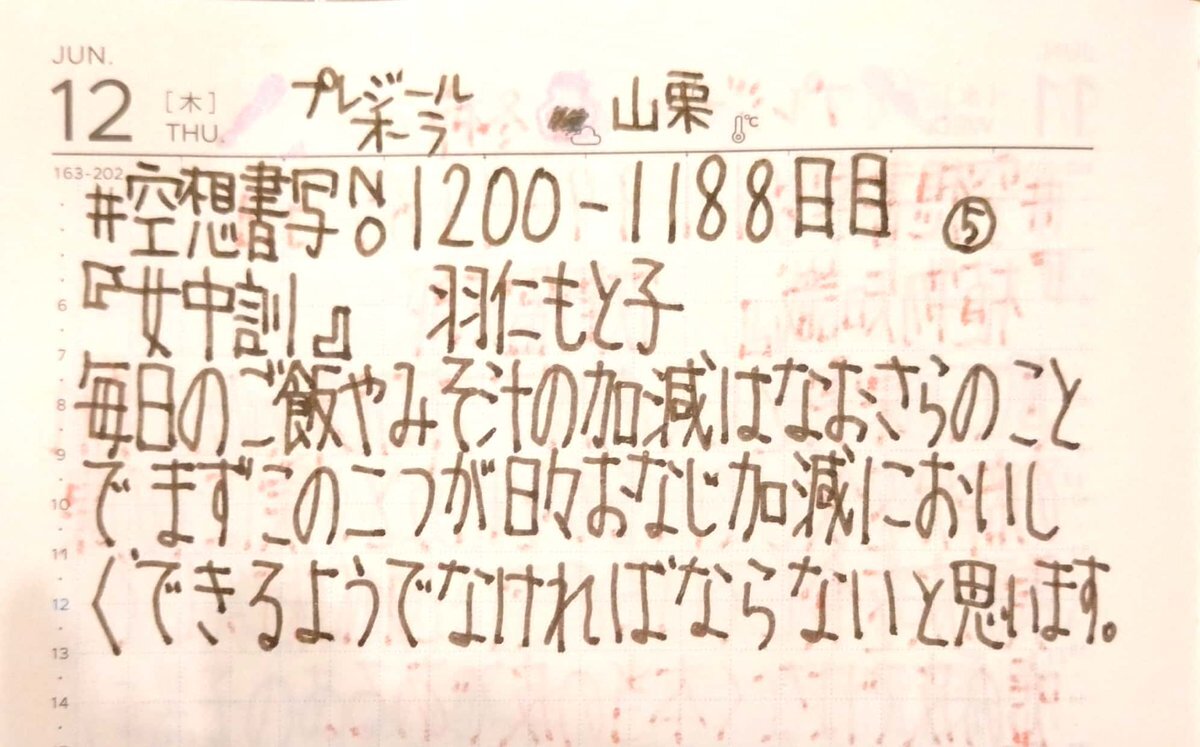 JUN.
12 [木] THU. プレジール オーラ 山栗 ℃
163-202
#空想書写No 1200-1188日目 ⑤
『女中訓』 羽仁もと子
6
7
毎日のご飯やみそ汁の加減はなおさらのこと
8
9
でまずこの二つが日々おなじ加減においし
10
11
くできるようでなければならないと思います。
12
13
14